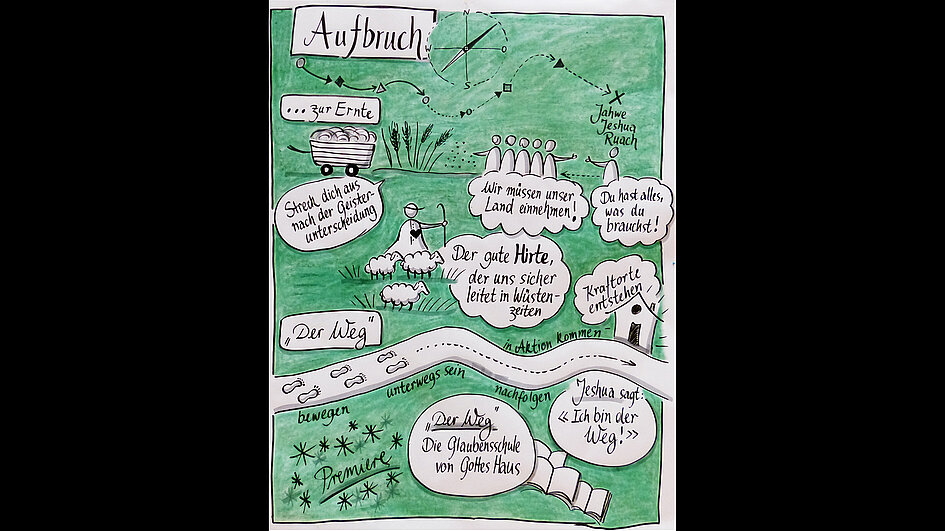 Aufbruch
N
W
O
S
... zur Ernte
Jahwe
Jeshua
Ruach
Streck dich aus
nach der Geister-
unterscheidung
Wir müssen unser
Land einnehmen!
Du hast alles,
was du
brauchst!
Der gute Hirte,
der uns sicher
leitet in Wüsten-
zeiten
Kraftorte
entstehen
„Der Weg"
bewegen
unterwegs sein
nachfolgen
in Aktion kommen
Jeshua sagt:
«Ich bin der
Weg!»
„Der Weg"
Die Glaubensschule
von Gottes Haus
Premiere